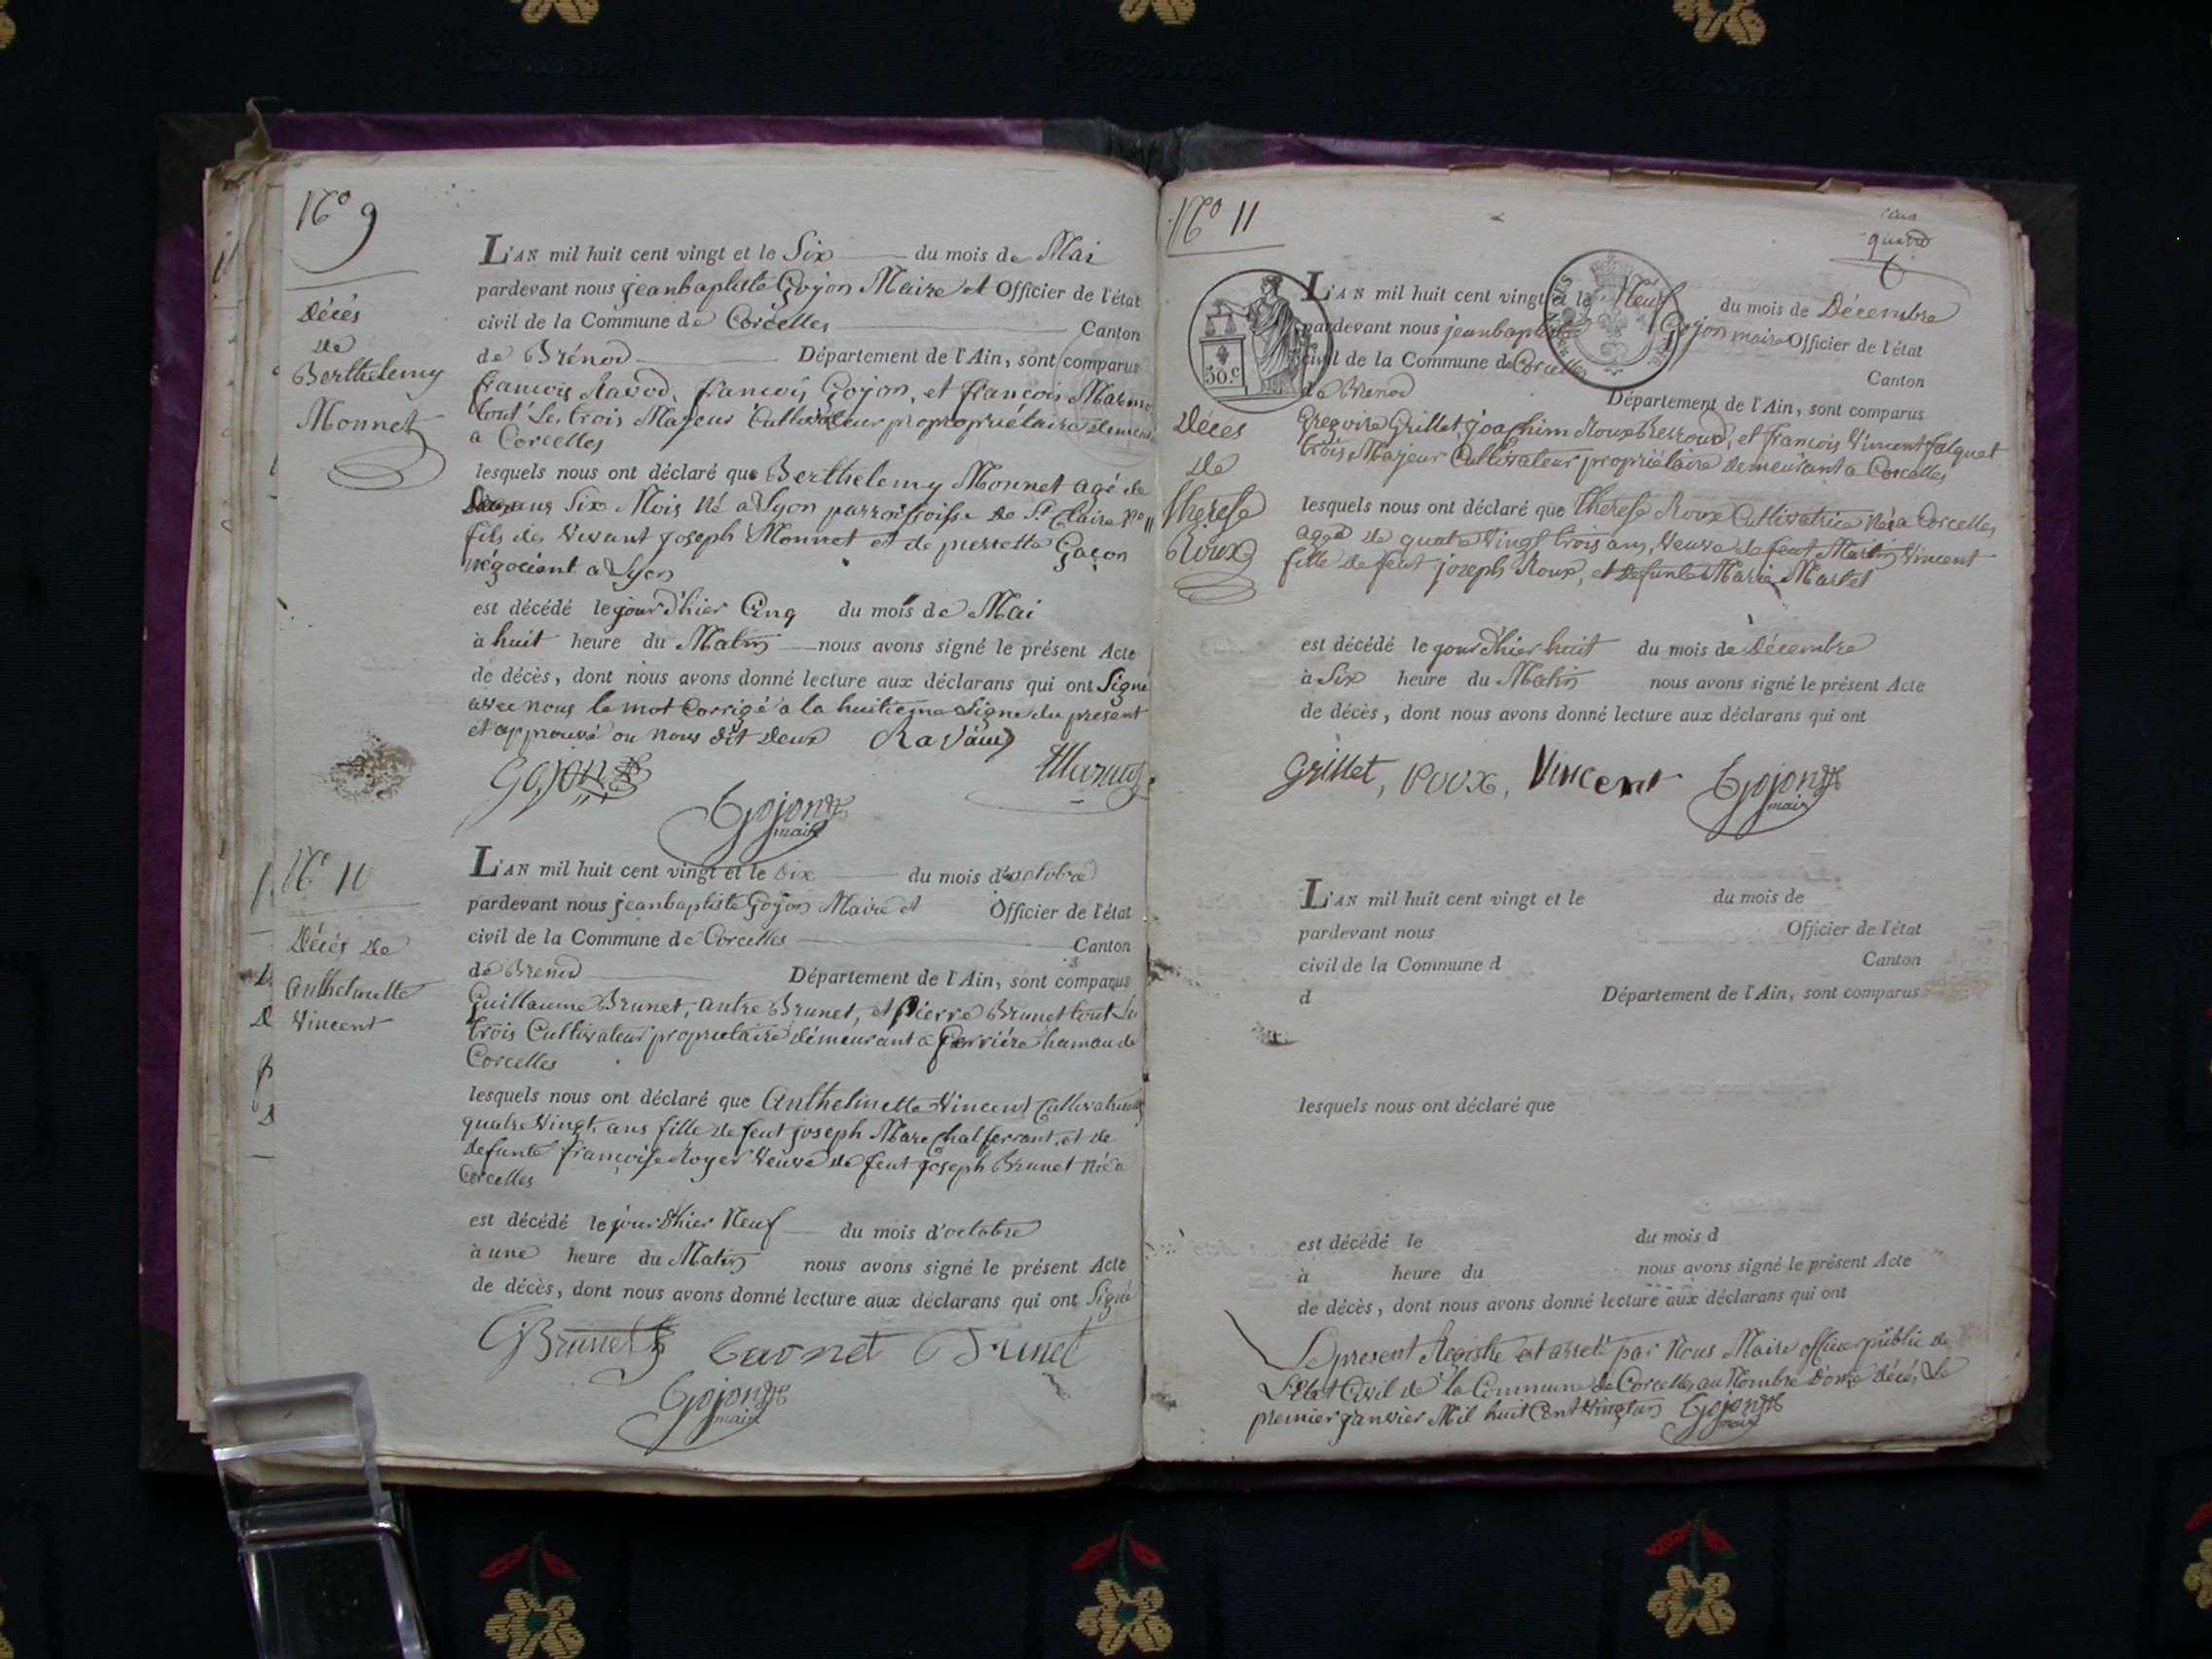 N.º 9
Décés
de
Berthelemy
Monnet
L'AN mil huit cent vingt et le Six du mois de Mai
pardevant nous jeanbaptiste Gojon Maire et Officier de l'état
civil de la Commune de Corcelles Canton
de Brénod Département de l'Ain, sont comparus
francois Ravod, francois Gojon, et francois
tout Les trois Majeur Cultivateur propropriétaire
a Corcelles
lesquels nous ont déclaré que Berthelemy Monnet agé de
ans Six Mois Né a Lyon parroissoisse de S.t Claire N.o 11
fils des Vivant joseph Monnet et de pierrette Gaçon
négociant a Lyon
est décédé le jour d'hier Cinq du mois de Mai
à huit heure du Matin nous avons signé le présent Acte
de décès, dont nous avons donné lecture aux déclarans qui ont Signé
avec nous le mot Corrigé a la huitieme Ligne du present
et approuvé ou Nous dit Deux Ravaud
Gojon
Gojon
maire
N.º 10
Décés de
Anthelmette
Vincent
L'AN mil huit cent vingt et le dix du mois d'octobre
pardevant nous jeanbaptiste Gojon Maire et Officier de l'état
civil de la Commune de Corcelles Canton
de Brenod Département de l'Ain, sont comparus
Guillaume Brunet, autre Brunet, et Pierre Brunet tout Les
trois Cultivateur proprietaire démeurant a ferriére hamau de
Corcelles
lesquels nous ont déclaré que Anthelmette Vincent
quatre Vingt ans fille de feut joseph Marechal ferrant, et de
defunte françoise Royer Veuve de feut joseph Brunet Née a
Corcelles
est décédé le jour d'hier Neuf du mois d'octobre
à une heure du Matin nous avons signé le présent Acte
de décès, dont nous avons donné lecture aux déclarans qui ont Signé
GBrunet Brunet
Gojon
maire
N.º 11
6
50.c
Décés
de
therese
Roux
L'AN mil huit cent vingt et le Neuf du mois de Décembre
pardevant nous jeanbaptiste Gojon maire Officier de l'état
civil de la Commune de Corcelles Canton
de Brenod Département de l'Ain, sont comparus
Gregoire Grillet, joachim Roux Berroud, et francois Vincent falquet
trois Majeur Cultivateur propriétaire demeurant a Corcelles
lesquels nous ont déclaré que therese Roux Cultivatrice Née a Corcelles
aged de quatre Vingt trois ans, Veuve de feut Martin Vincent
fille de feut joseph Roux, et defunte Marie Martel
est décédé le jour d'hier huit du mois de Décembre
à Six heure du Matin nous avons signé le présent Acte
de décès, dont nous avons donné lecture aux déclarans qui ont
Grillet, roux, Vincent Gojon
maire
L'AN mil huit cent vingt et le du mois de
pardevant nous Officier de l'état
civil de la Commune d Canton
d Département de l'Ain, sont comparus
lesquels nous ont déclaré que
est décédé le du mois d
à heure du nous avons signé le présent Acte
de décès, dont nous avons donné lecture aux déclarans qui ont
Le present Registre est arreté par Nous Maire officier public de
L'Etat Civil de la Commune de Corcelles au Nombre d'onze décés Le
premier janvier Mil huit Cent Vingt un Gojon
maire